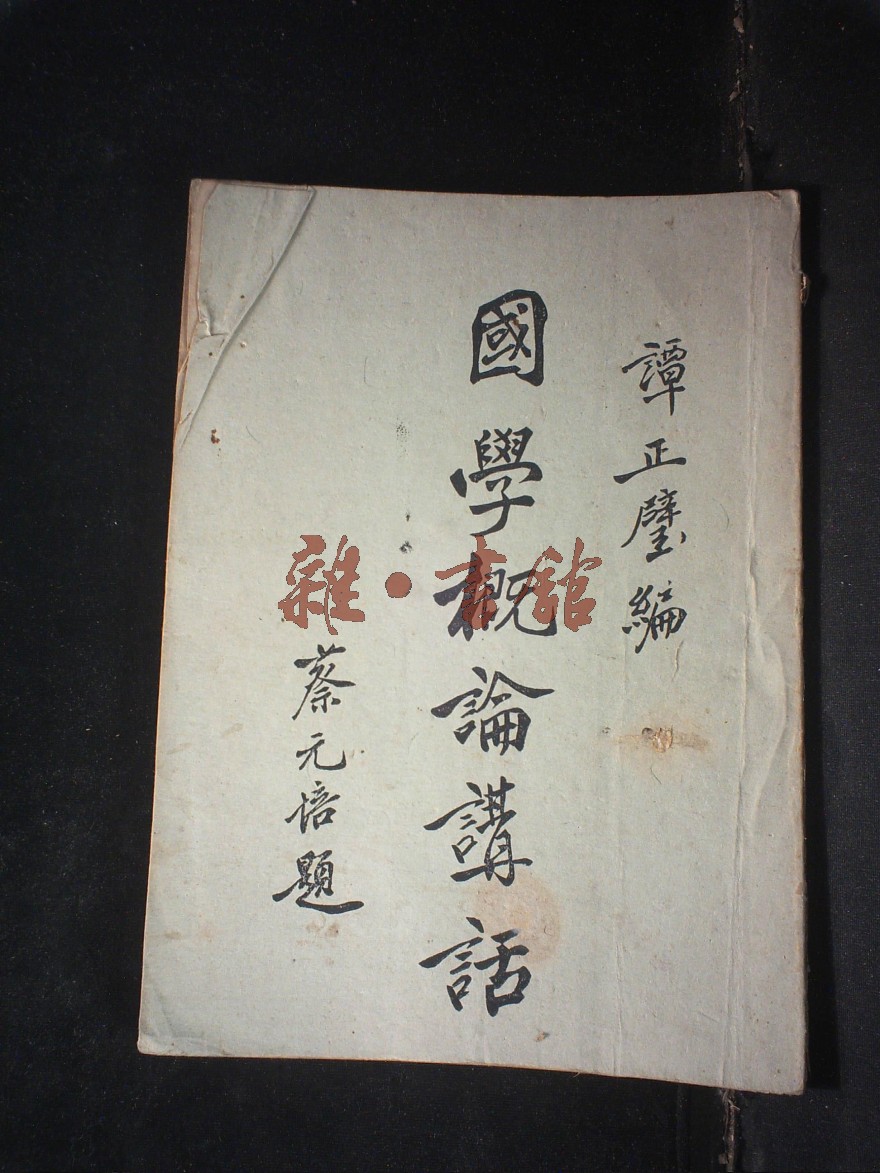 譚正璧編
國學概論講話
蔡元培題
雜·書館